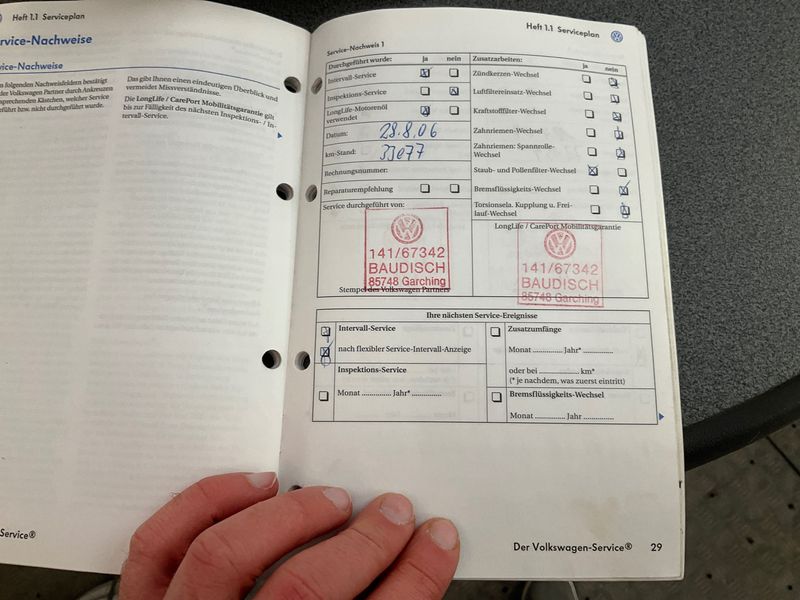 Heft 1.1 Serviceplan
rvice-Nachweise
ice-Nachweise
n folgenden Nachweisfeldern bestätigt
der Volkswagen Partner durch Ankreuzen
sprechenden Kästchen, welcher Service
geführt bzw. nicht durchgeführt wurde.
Das gibt Ihnen einen eindeutigen Überblick und
vermeidet Missverständnisse.
Die LongLife / CarePort Mobilitätsgarantie gilt
bis zur Fälligkeit des nächsten Inspektions- / In-
tervall-Service.
Service®
Heft 1.1 Serviceplan
Service-Nachweis 1
Durchgeführt wurde: ja nein
Intervall-Service
Inspektions-Service
LongLife-Motorenöl
verwendet
Datum: 28.8.06
km-Stand:
Rechnungsnummer:
Reparaturempfehlung
Service durchgeführt von:
141/67342
BAUDISCH
85748 Garching
Stempel des Volkswagen Partners
Zusatzarbeiten: ja nein
Zündkerzen-Wechsel
Luftfiltereinsatz-Wechsel
Kraftstofffilter-Wechsel
Zahnriemen-Wechsel
Zahnriemen: Spannrolle-
Wechsel
Staub- und Pollenfilter-Wechsel
Bremsflüssigkeits-Wechsel
Torsionsela. Kupplung u. Frei-
lauf-Wechsel
LongLife / CarePort Mobilitätsgarantie
141/67342
BAUDISCH
85748 Garching
Ihre nächsten Service-Ereignisse
Intervall-Service
nach flexibler Service-Intervall-Anzeige
Inspektions-Service
Monat .............. Jahr* ..............
Zusatzumfänge
Monat .............. Jahr* ..............
oder bei .................. km*
(* je nachdem, was zuerst eintritt)
Bremsflüssigkeits-Wechsel
Monat .............. Jahr ..............
Der Volkswagen-Service® 29